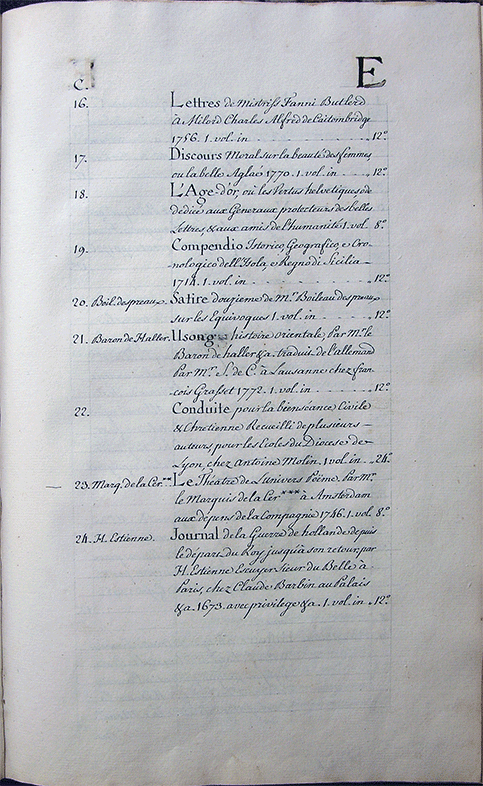 E
C.
16. Lettres de Mistriss Fanni Butlerd
a Milord Charles Alfred de Caitombridge
1756. 1. vol. in 12.°
17. Discours Moral sur la beauté des femmes
ou la belle Aglaé 1770. 1. vol. in 12.°
18. L'Age d'or, ou les Vertus helvetiques ode
dediée aux Generaux protecteurs des belles
Lettres, & aux amis de l'humanité 1. vol. 8.°
19. Compendio Istorico, Geografico, e Cro-
nologico dell'Isola, e Regno di Sicilia
1714. 1. vol. in 12.°
20. Boil. despreaux. Satire douzieme de M.r Boileau despreaux
sur les Equivoques 1. vol. in 12.°
21. Baron de Haller. Usong histoire orientale, Par M.r le
Baron de haller &a. traduit de l'allemand
Par M.r S. de C. à Lausanne chez fran-
cois Grasset 1772. 1. vol. in 12.°
22. Conduite pour la bienséance Civile
& Chretienne Recueilli de plusieurs
auteurs pour les Ecoles du Diocese de
Lyon, chez Antoine Molin. 1. vol. in 24.°
23. Marq. de la Cer.** Le Théatre de L'univers Poëme Par M.r
le Marquis de la Cer*** à Amsterdam
aux depens de la Compagnie 1746. 1. vol. 8.°
24. H. Estienne. Journal de la Guerre de hollande depuis
le départ du Roy jusqu'à son retour, par
H. Estienne Escuyer Sieur du Belle à
Paris, chez Claude Barbin au Palais
&a. 1673. avec privilege &a. 1. vol. in 12.°